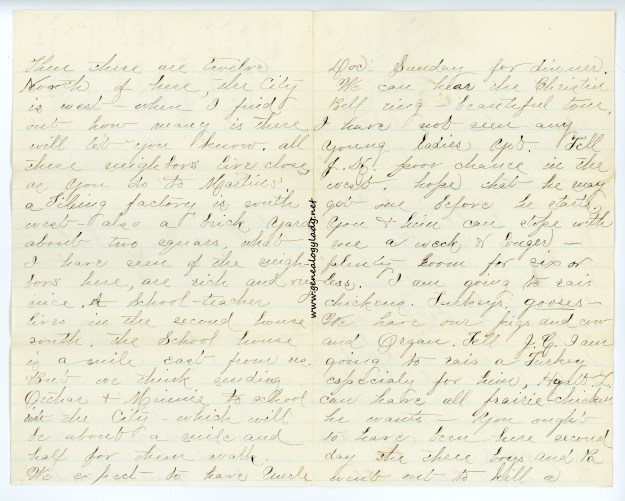 Then there are twelve
North of here, the City
is west - when I find
out how many is there
will let you know. all
these neighbors live close
as you do to Martins'
a Tiling factory is south
west - also a brick yard
about two squares, what
I have seen of the neigh-
bors here, are rich and very
nice. A School-teacher
lives in the second house
south. the School house
is a mile east from us.
But we think sending
& Minnie to school
in the City - which will
be about a mile and
half for them walk.
We expect to have Uncle
Doc. Sunday for dinner.
We can hear the Christin
Bell ring - beautiful tone,
I have not seen any
young ladies yet. Tell
poor chance in the
west. hope that he may
get one before he starts.
You & him can stope with
me a week & longer -
plenty room for six or
less. I am going to rais
chickens. Turkeys, gooses -
We have our pigs and cow
and Organ. Tell J.G. I am
going to rais a Turkey
especialy for him,
can have all prairie-chicken
he wants - You ought
to have been here second
day the three boys and Pa
went out to kill a
www.genealogylady.net